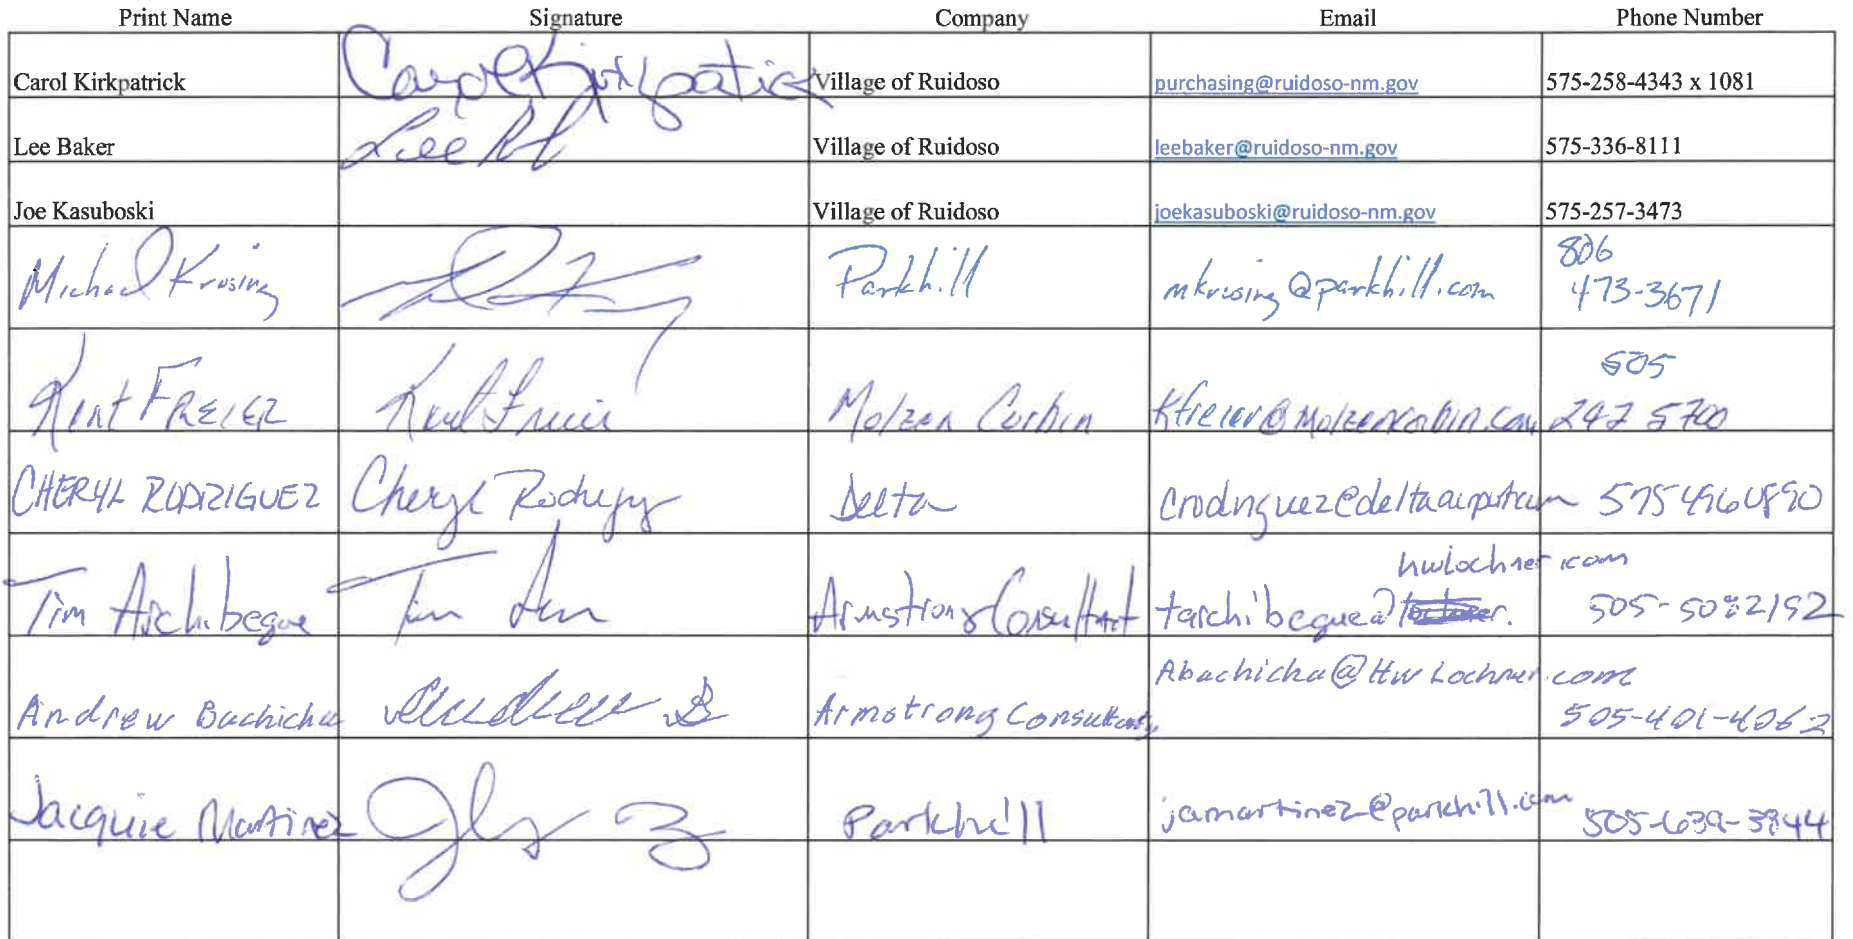 Print Name Signature Company Email Phone Number
Carol Kirkpatrick Carol Kirkpatrick Village of Ruidoso purchasing@ruidoso-nm.gov 575-258-4343 x 1081
Lee Baker Lee Village of Ruidoso leebaker@ruidoso-nm.gov 575-336-8111
Joe Kasuboski Village of Ruidoso joekasuboski@ruidoso-nm.gov 575-257-3473
806
Michael Krusing Parkhill mkrusing@parkhill.com 473-3671
505
Kent FREIER Kent Freier Molzen Corbin Kfreier@molzencorbin.com 242 5700
CHERYL RODRIGUEZ Cheryl Rodriguez Delta crodriguez@deltaairport.com 575 496 0890
hwlochner.com
Tim Archibeque Tim Armstrong Consultant tarchibeque@ 505-5082192
Abachicha@HwLochner.com
Andrew Bachicha Andrew B Armstrong Consultants 505-401-4062
Jacquie Martinez Parkhill jamartinez@parkhill.com 505-639-3944